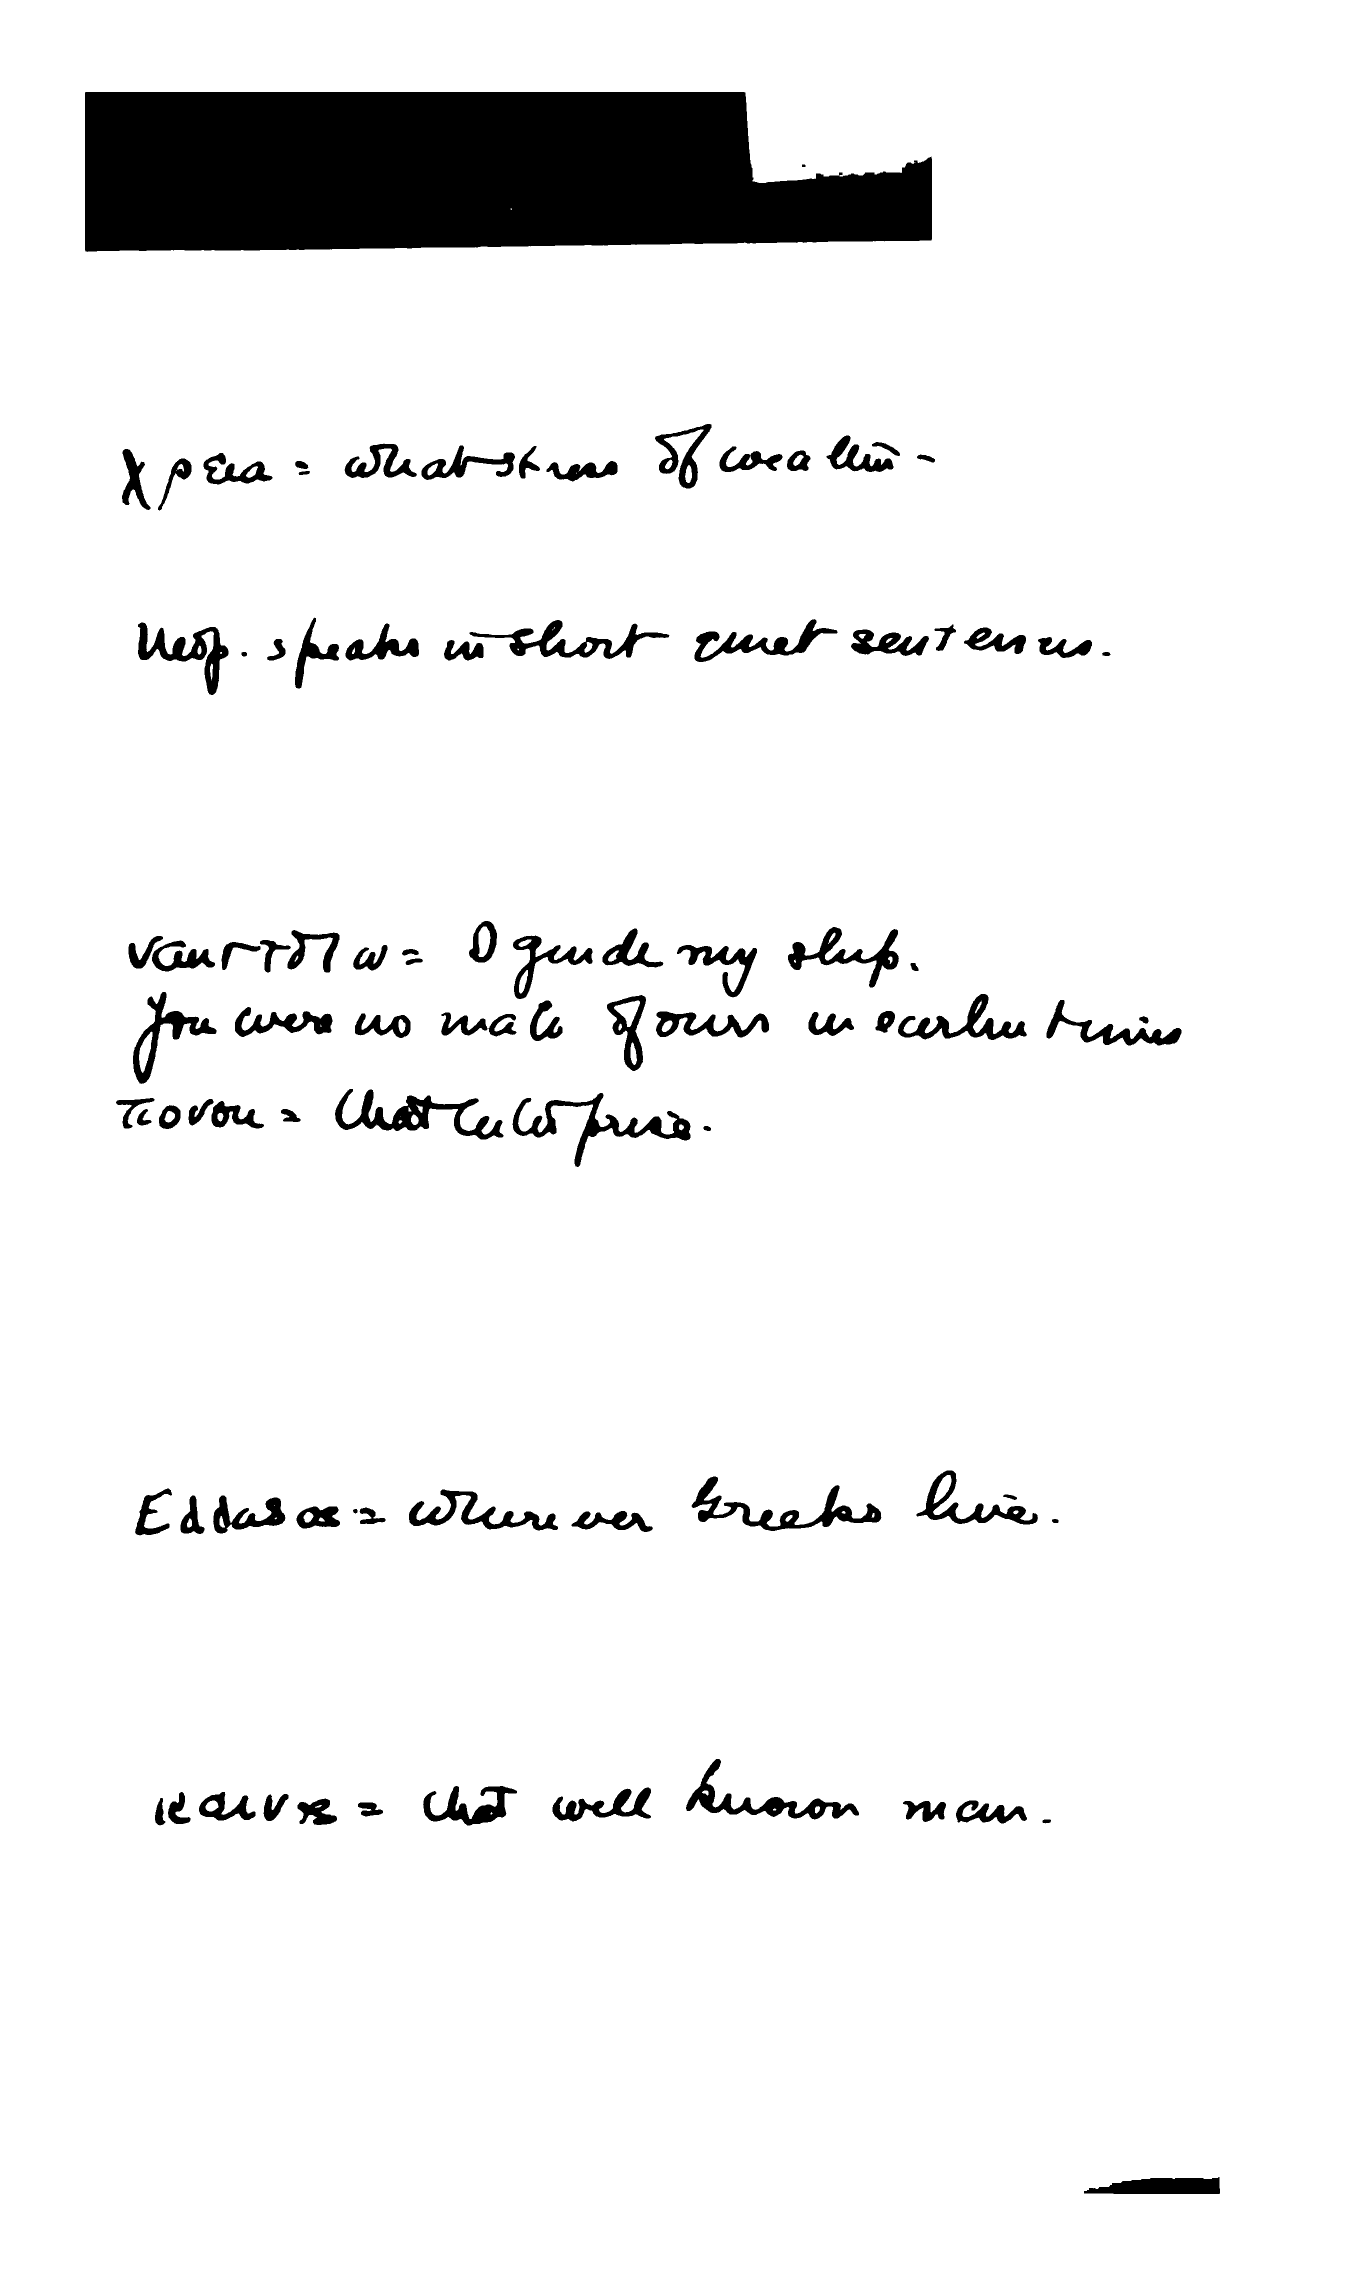 χρεια = what stress of weather -
Neop. speaks in short quiet sentences.
ναυστολω = I guide my ship.
You were no mate of ours in earlier times
πονου = that enterprise.
Ελλαδος = wherever Greeks live.
κεινος = that well known man.